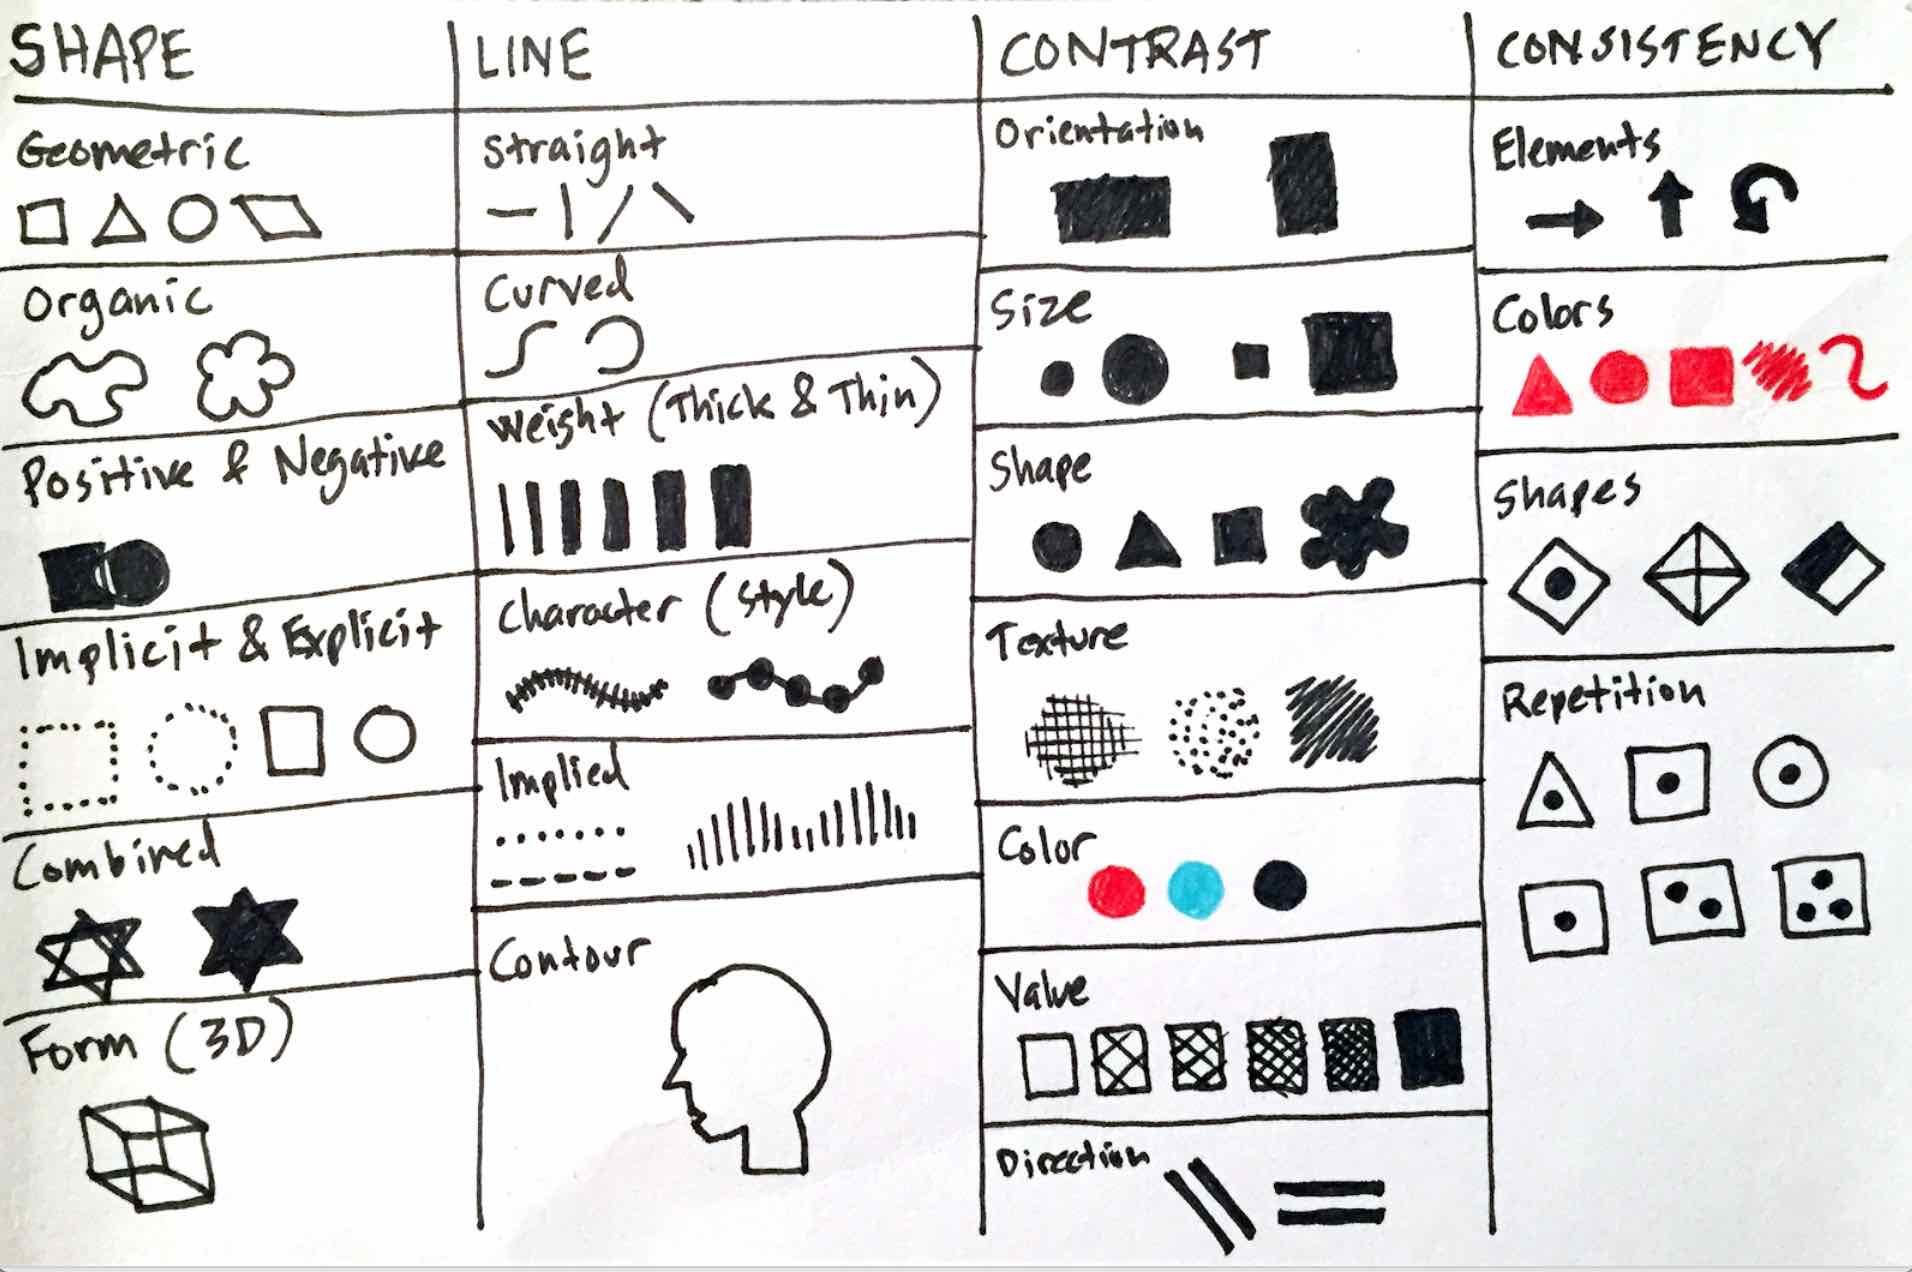 SHAPE
Geometric
Organic
Positive & Negative
Implicit & Explicit
Combined
Form (3D)
LINE
Straight
Curved
Weight (Thick & Thin)
Character (Style)
Implied
Contour
CONTRAST
Orientation
Size
Shape
Texture
Color
Value
Direction
CONSISTENCY
Elements
Colors
Shapes
Repetition